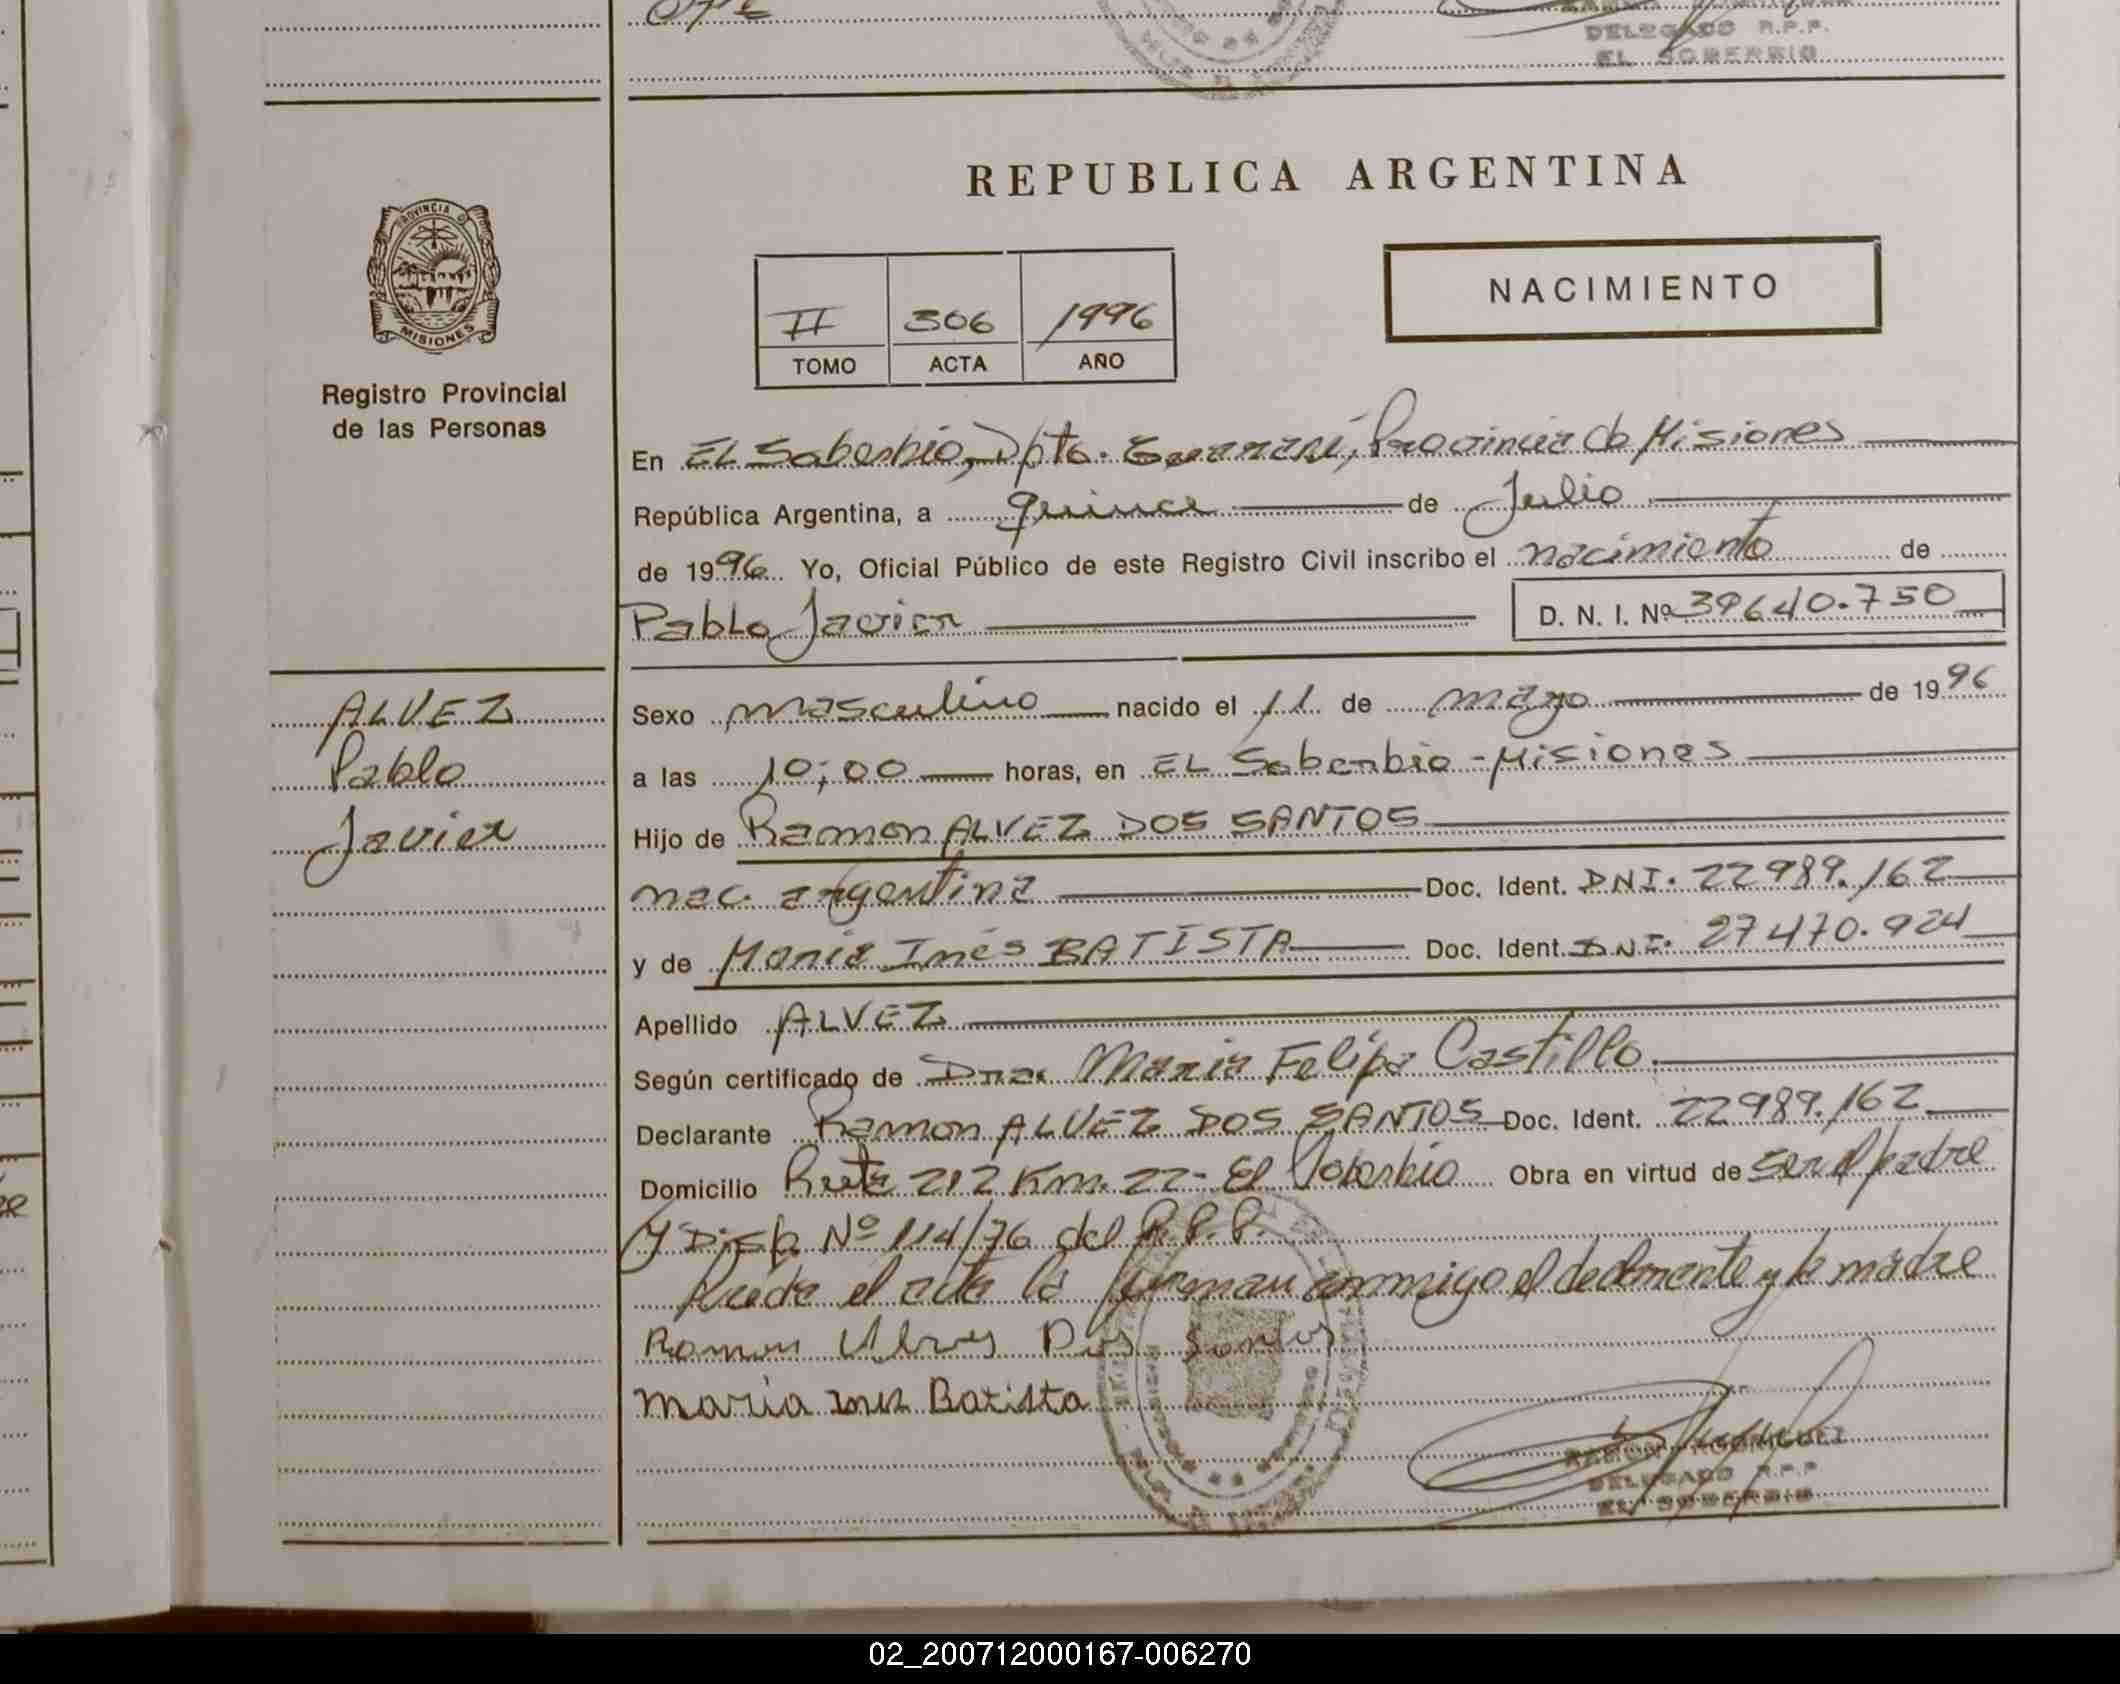 DELEGADO R.P.P.
EL SOBERBIO
REPUBLICA ARGENTINA
PROVINCIA D
MISIONES
Registro Provincial
de las Personas
NACIMIENTO
II 306 1996
TOMO ACTA AÑO
En EL Soberbio, Dpto. Guaraní, Provincia de Misiones
República Argentina, a quince de Julio
de 1996 Yo, Oficial Público de este Registro Civil inscribo el nacimiento de
Pablo Javier D. N. I. Nº 39640.750
ALVEZ
Pablo
Javier
Sexo masculino nacido el 11 de mayo de 1996
a las 10;00 horas, en EL Soberbio - Misiones
Hijo de Ramon ALVEZ DOS SANTOS
nac. argentina Doc. Ident. DNI. 22989.162
y de Maria Inés BATISTA Doc. Ident. DNI. 27470.924
Apellido ALVEZ
Según certificado de Dña. Maria Felipa Castillo.
Declarante Ramon ALVEZ DOS SANTOS Doc. Ident. 22989.162
Domicilio Ruta 212 Km. 22 - El Soberbio Obra en virtud de ser el padre
y Disp. Nº 114/76 del R.P.P.
Leida el acta la firman conmigo el declarante y la madre
Ramon Alves Dos Santos
maria ines Batista
DELEGADO R.P.P
EL SOBERBIO
02_200712000167-006270